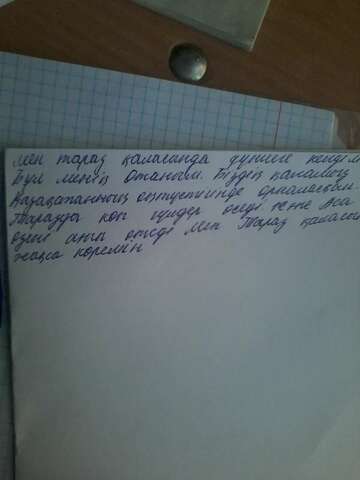 мен тараз қаласанда дуниге келдім
Бұл менің Отаным. Біздің қаламыз
Қазақстанның оңтүстігінде орналасқан
Таразда көп гүлдер өседі және Аса
өзені ағып өтеді Мен Тараз қаласын
жақса көремін